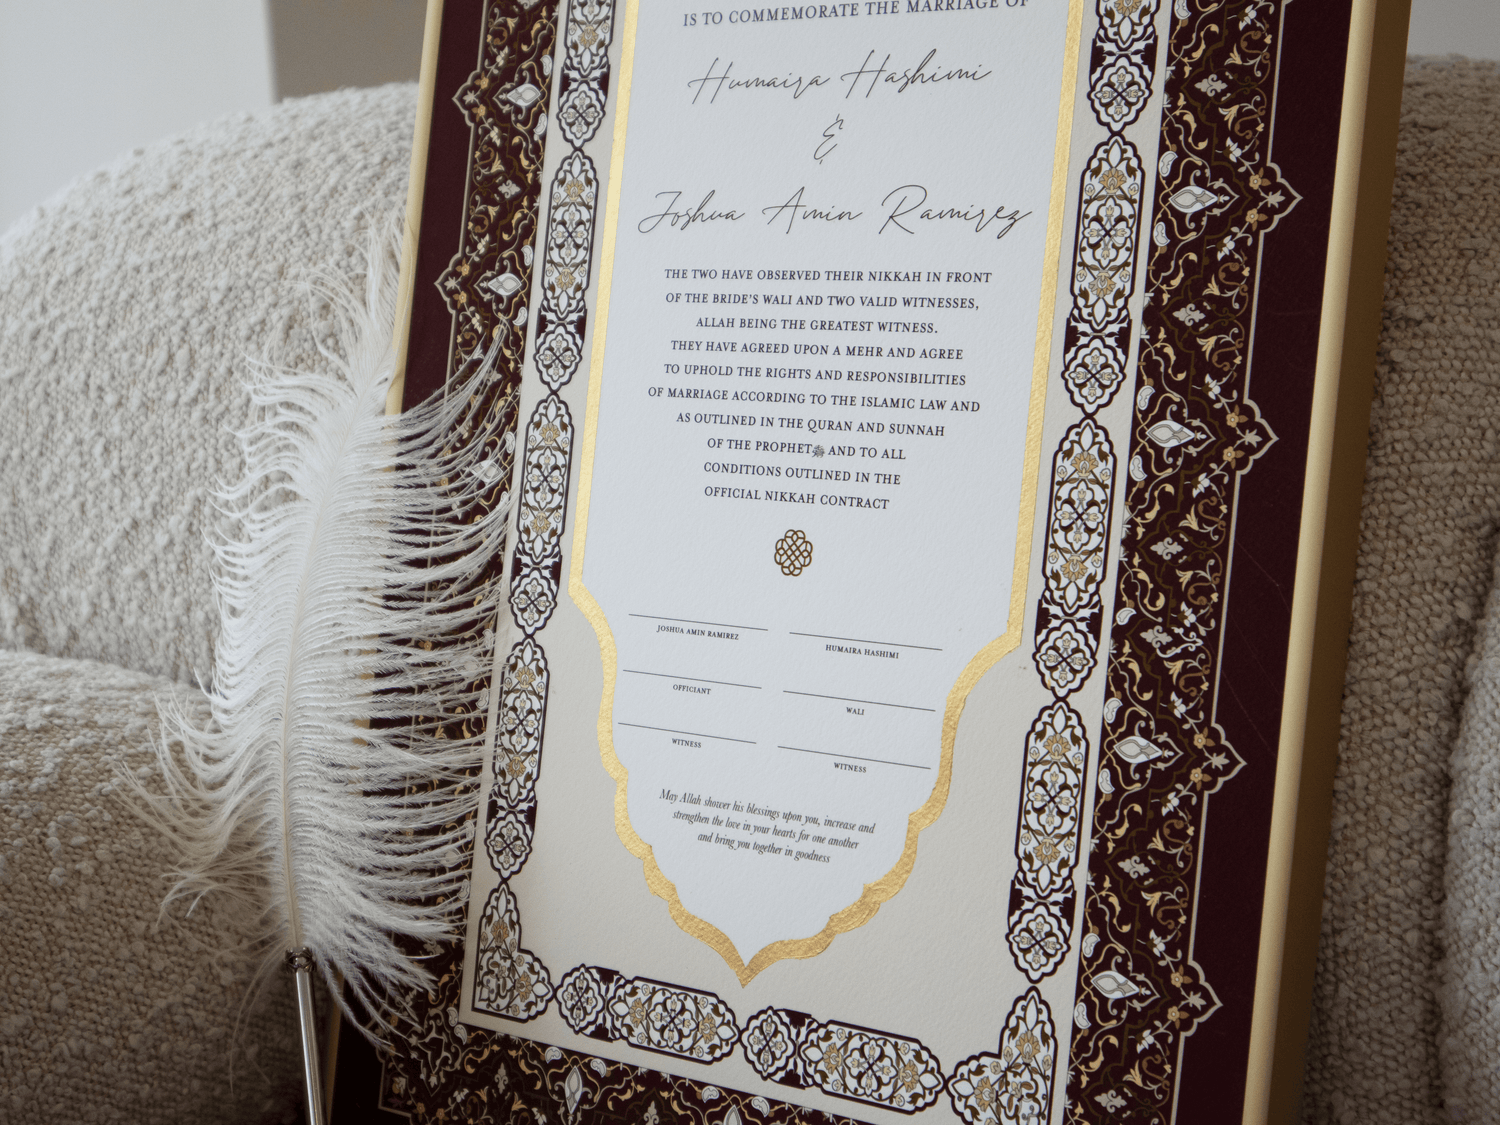 IS TO COMMEMORATE THE MARRIAGE OF
Humaira Hashimi
&
Joshua Amin Ramirez
THE TWO HAVE OBSERVED THEIR NIKKAH IN FRONT
OF THE BRIDE'S WALI AND TWO VALID WITNESSES,
ALLAH BEING THE GREATEST WITNESS.
THEY HAVE AGREED UPON A MEHR AND AGREE
TO UPHOLD THE RIGHTS AND RESPONSIBILITIES
OF MARRIAGE ACCORDING TO THE ISLAMIC LAW AND
AS OUTLINED IN THE QURAN AND SUNNAH
OF THE PROPHET ﷺ AND TO ALL
CONDITIONS OUTLINED IN THE
OFFICIAL NIKKAH CONTRACT
JOSHUA AMIN RAMIREZ
HUMAIRA HASHIMI
OFFICIANT
WALI
WITNESS
WITNESS
May Allah shower his blessings upon you, increase and
strengthen the love in your hearts for one another
and bring you together in goodness